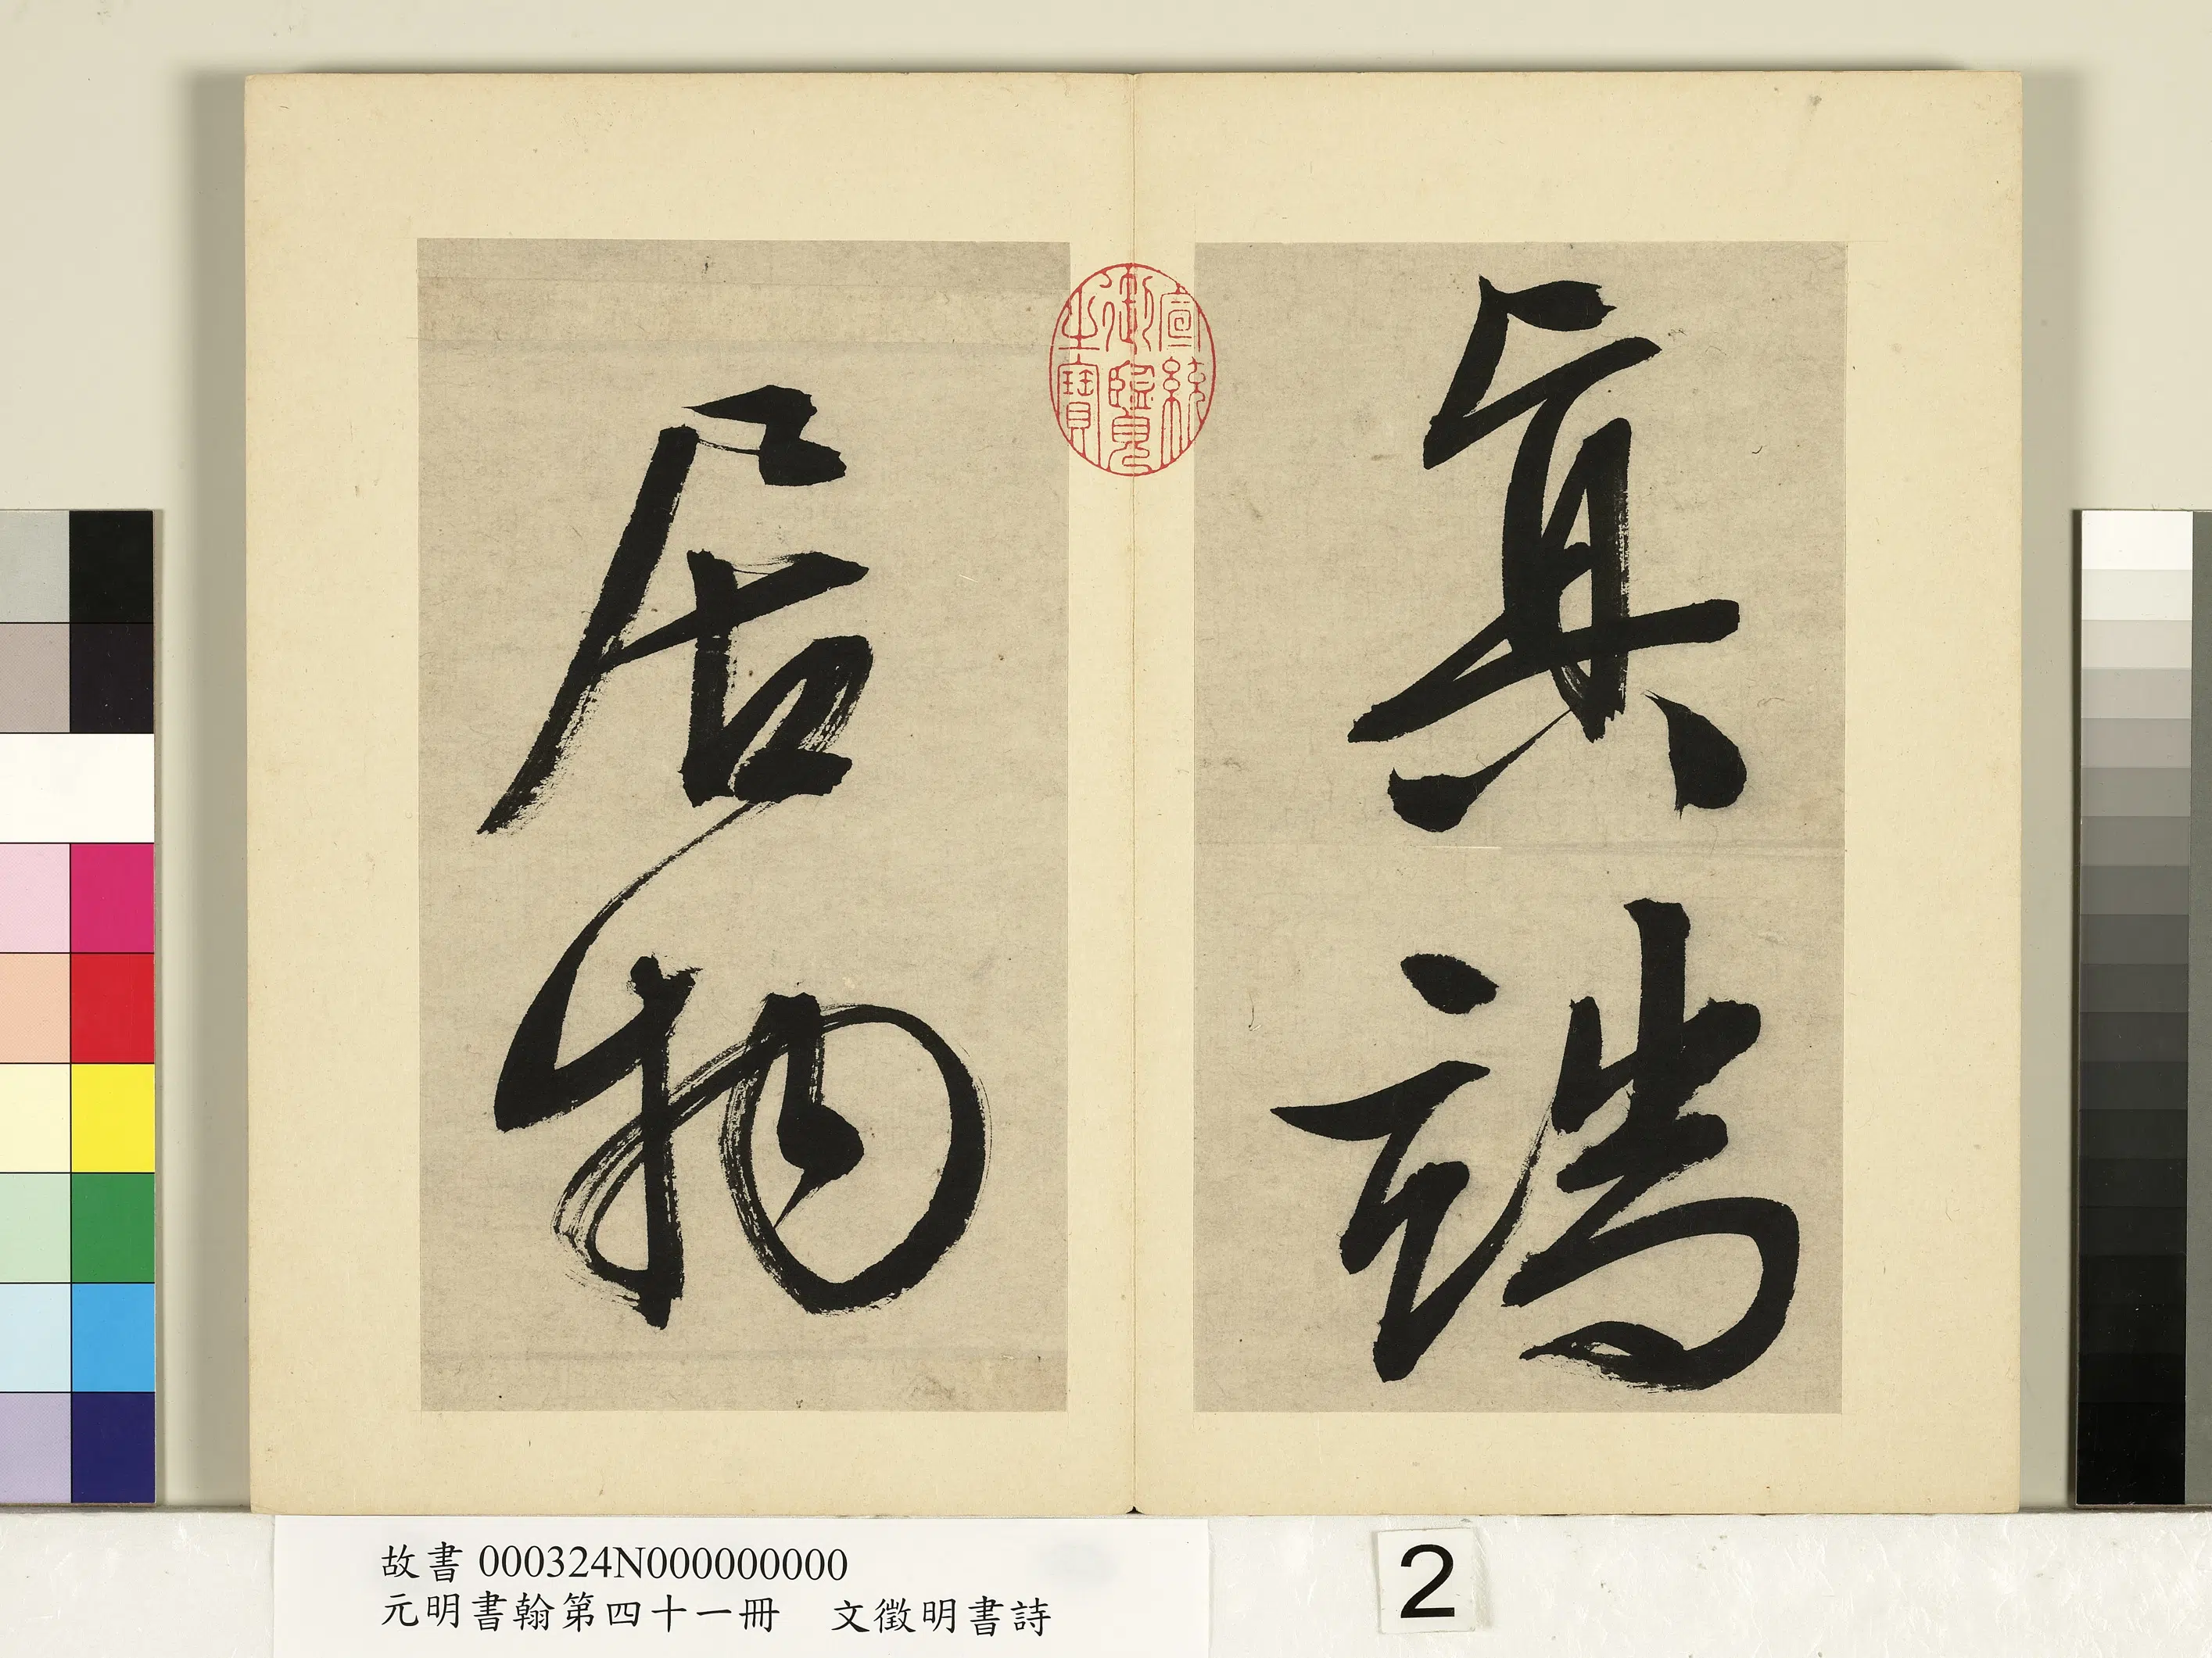 真端
居物
宣統
御覽
之寶
故書 000324N000000000
元明書翰第四十一冊　文徵明書詩
2